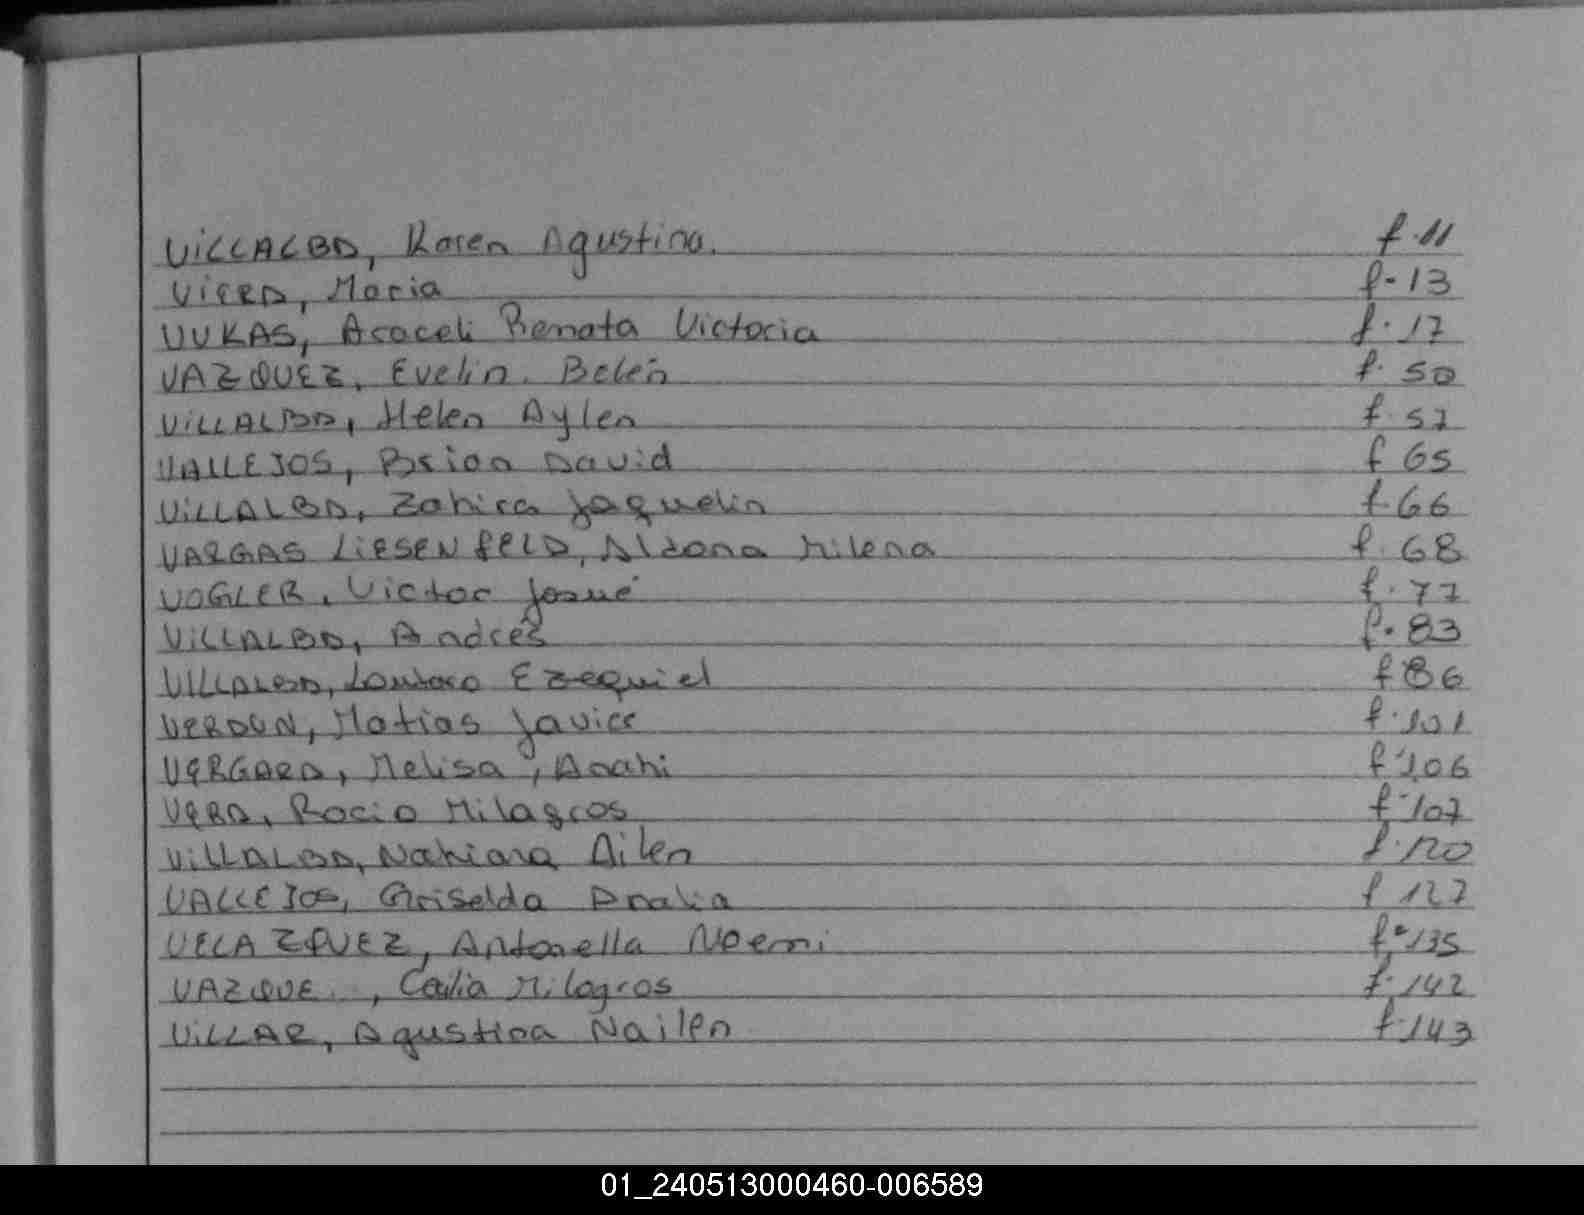 VILLALBA, Karen Agustina. f. 11
VIERA, Maria f. 13
VUKAS, Araceli Renata Victoria f. 17
VAZQUEZ, Evelin. Belén f. 50
VILLALBA, Helen Aylen f. 57
VALLEJOS, Brian David f 65
VILLALBA, Zahira Jaquelin f. 66
VARGAS LIESENFELD, Aldana Milena f. 68
VOGLER, Victor Josué f. 77
VILLALBA, Andrés f. 83
VILLALBA, Lautaro Ezequiel f 86
VERDUN, Matias Javier f. 101
VERGARA, Melisa, Anahi f. 106
VERA, Rocio Milagros f. 107
VILLALBA, Nahiara Ailen f. 120
VALLEJOS, Griselda Analia f 127
VELAZQUEZ, Antonella Noemi f. 135
VAZQUE , Cecilia Milagros f. 142
VILLAR, Agustina Nailen f. 143
01_240513000460-006589